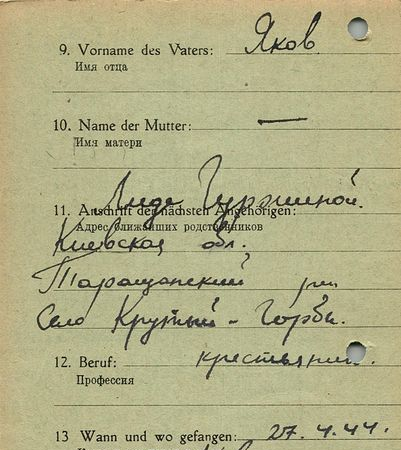 9. Vorname des Vaters: Яков
Имя отца
10. Name der Mutter: —
Имя матери
Лиде
11. Anschrift der nächsten Angehörigen:
Адрес ближайших родственников
Киевская обл.
Таращанский
Село Крутый - Горбы.
12. Beruf: крестьянин.
Профессия
13 Wann und wo gefangen: 27.4.44.